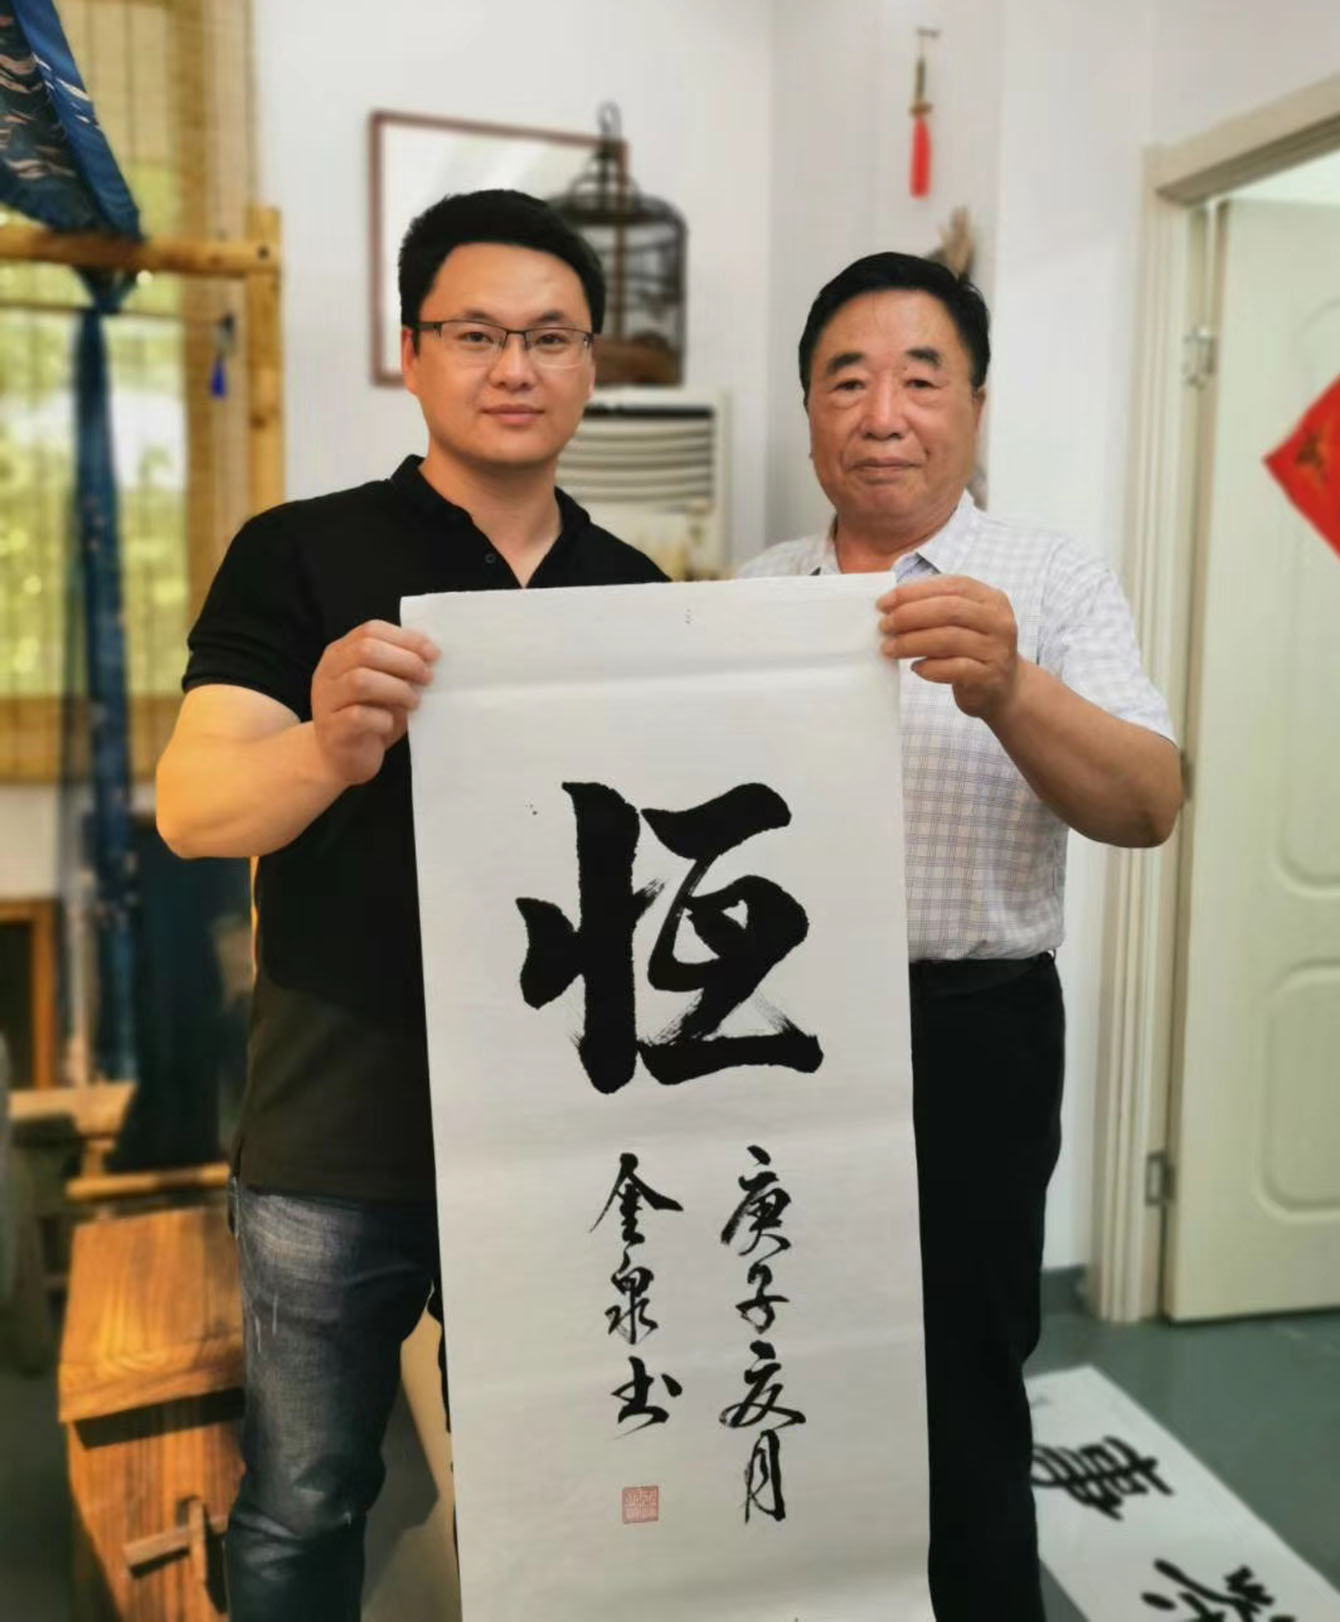 恒
庚子夏月
金泉书